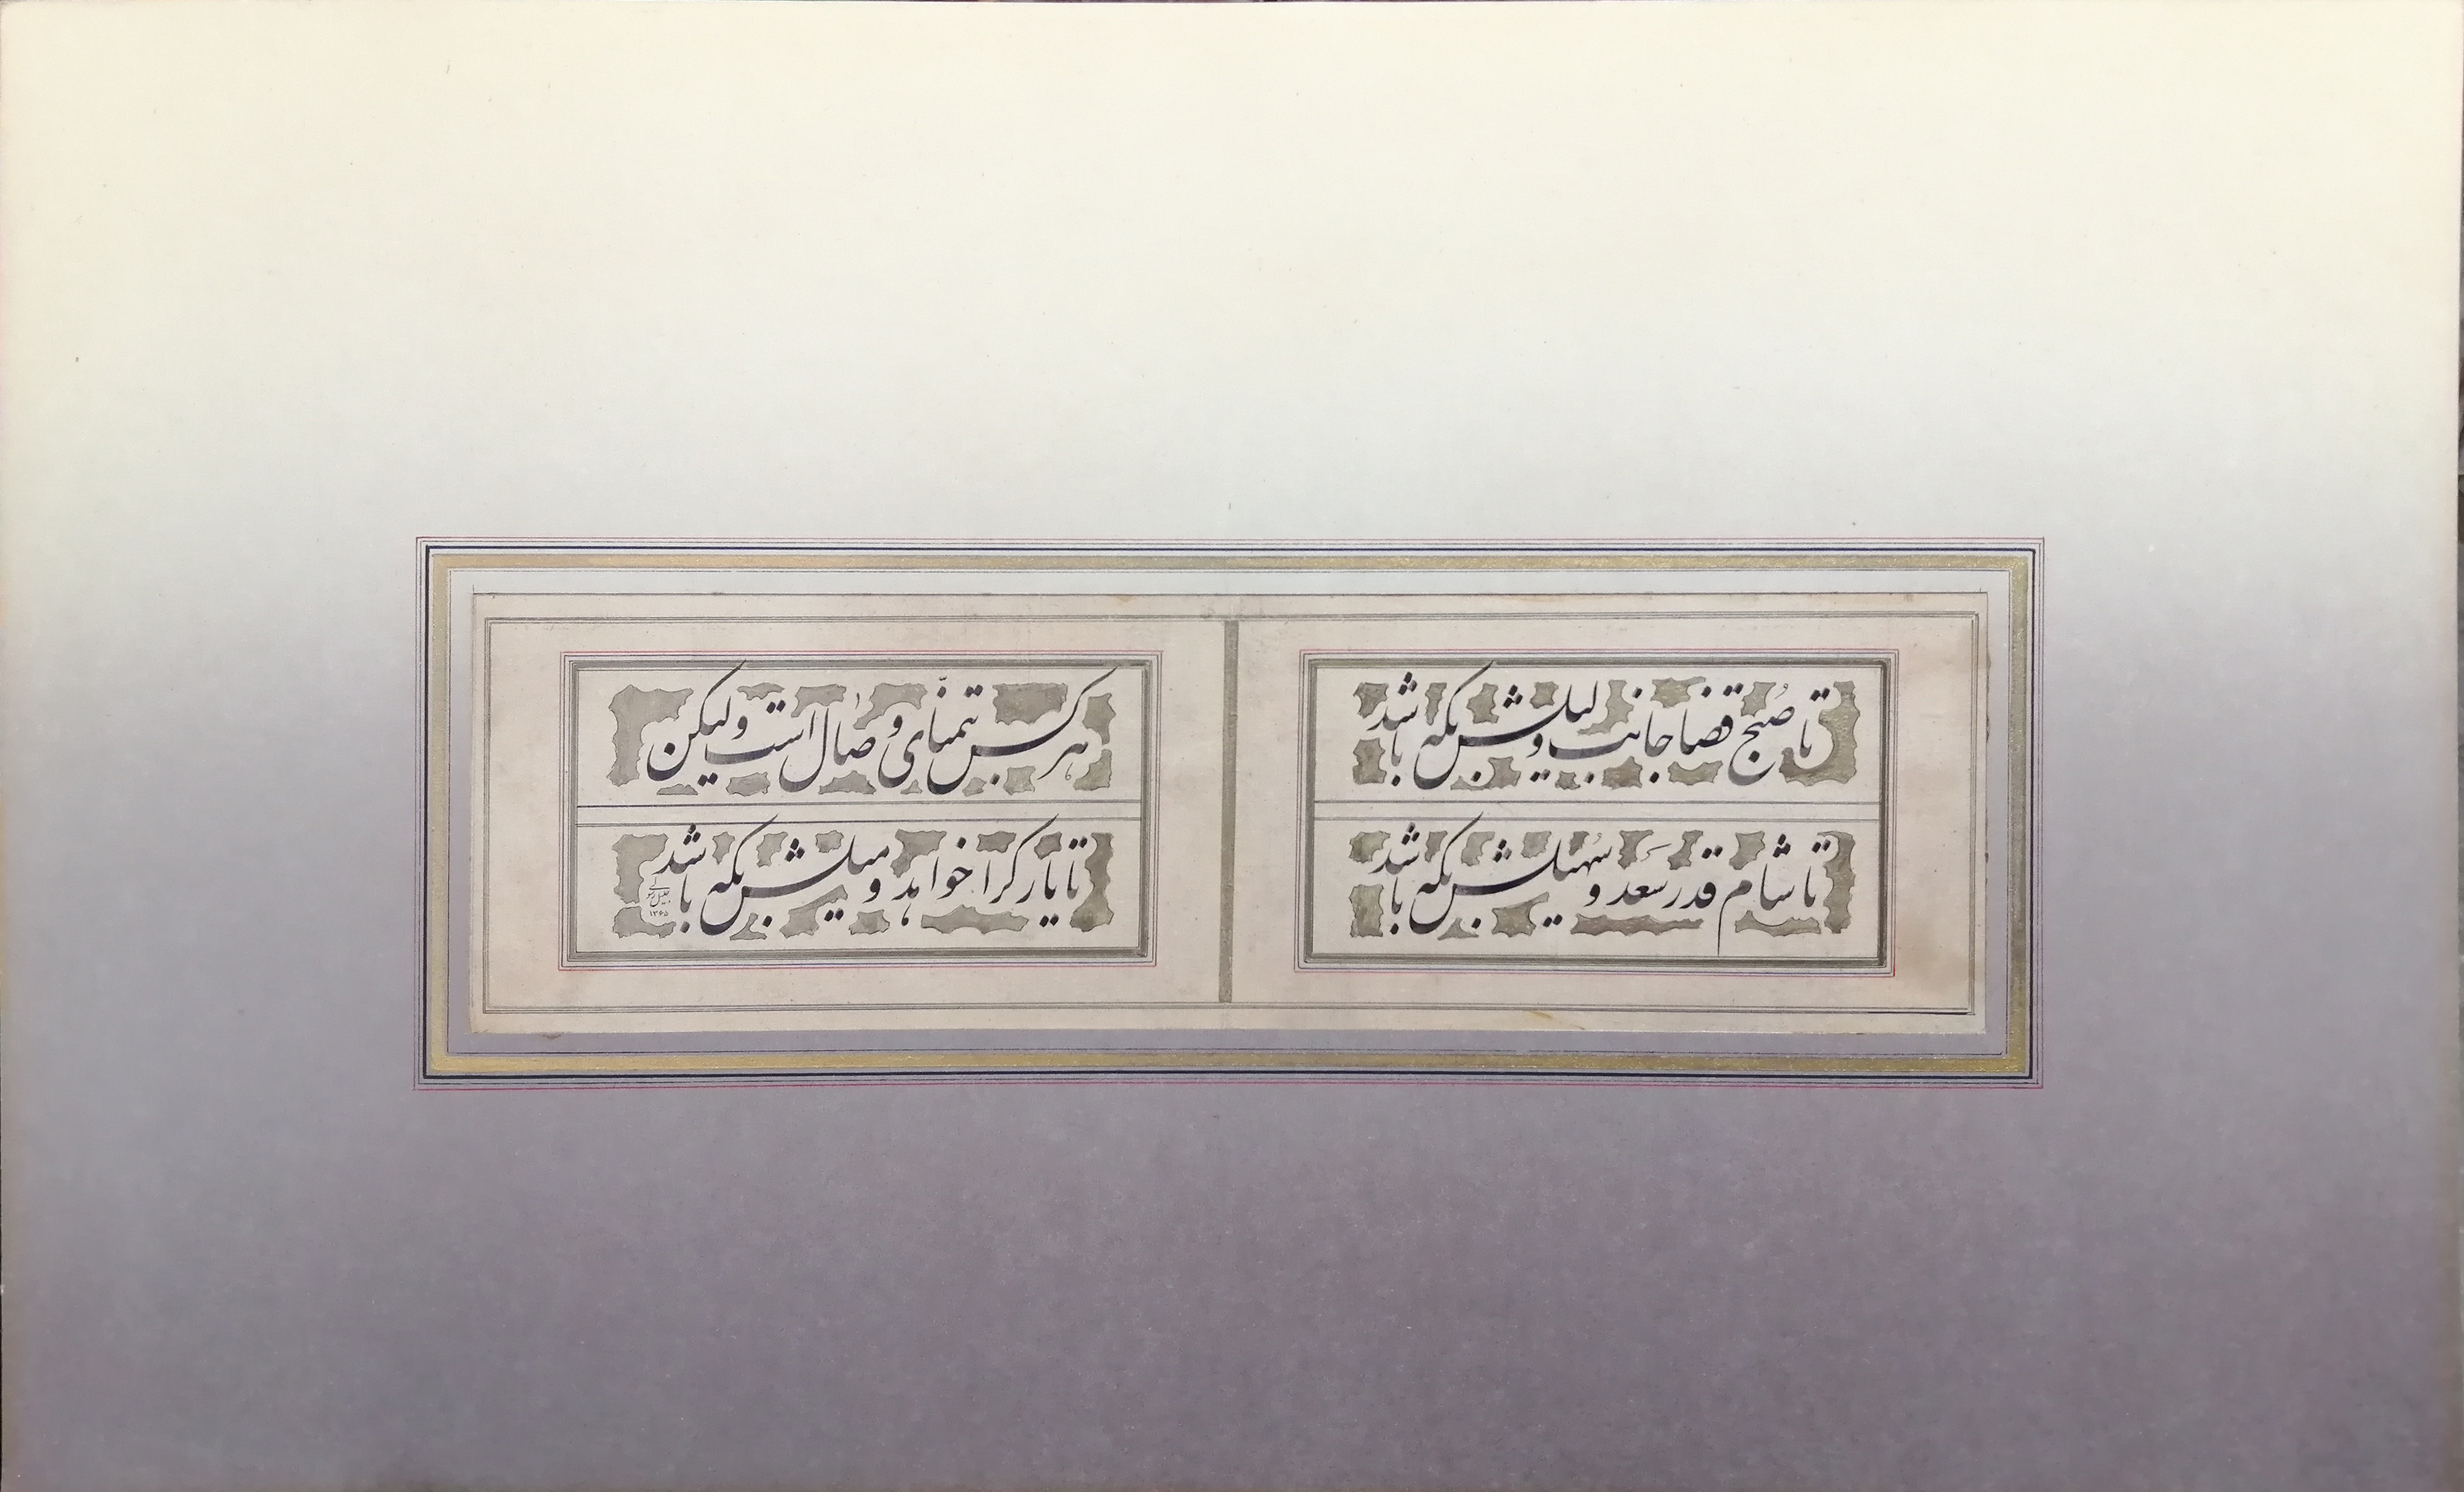 تا صُبح قضا جانب و لیلش بکه باشد
تا شام قَدر سعد و سُهیلش بکه باشد
هر کس بتمنّای وصال است ولیکن
تا یار کرا خواهد و میلش بکه باشد
جلیل رسولی
۱۳۶۵